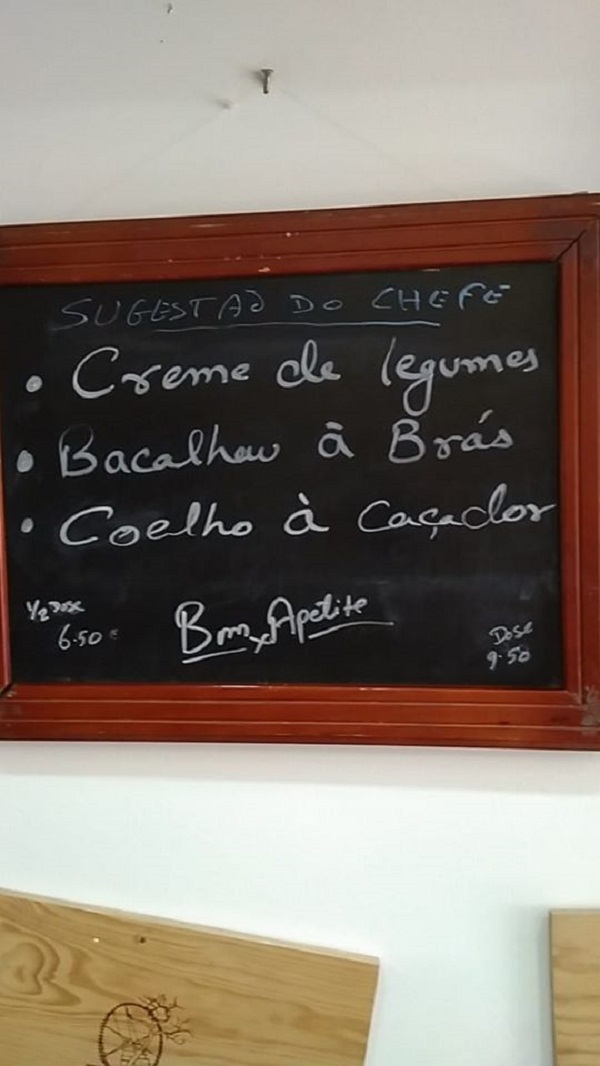 SUGESTÃO DO CHEFE
• Creme de legumes
• Bacalhau à Brás
• Coelho à Caçador
1/2 DOSE
6.50 €
Bom Apetite
DOSE
9.50